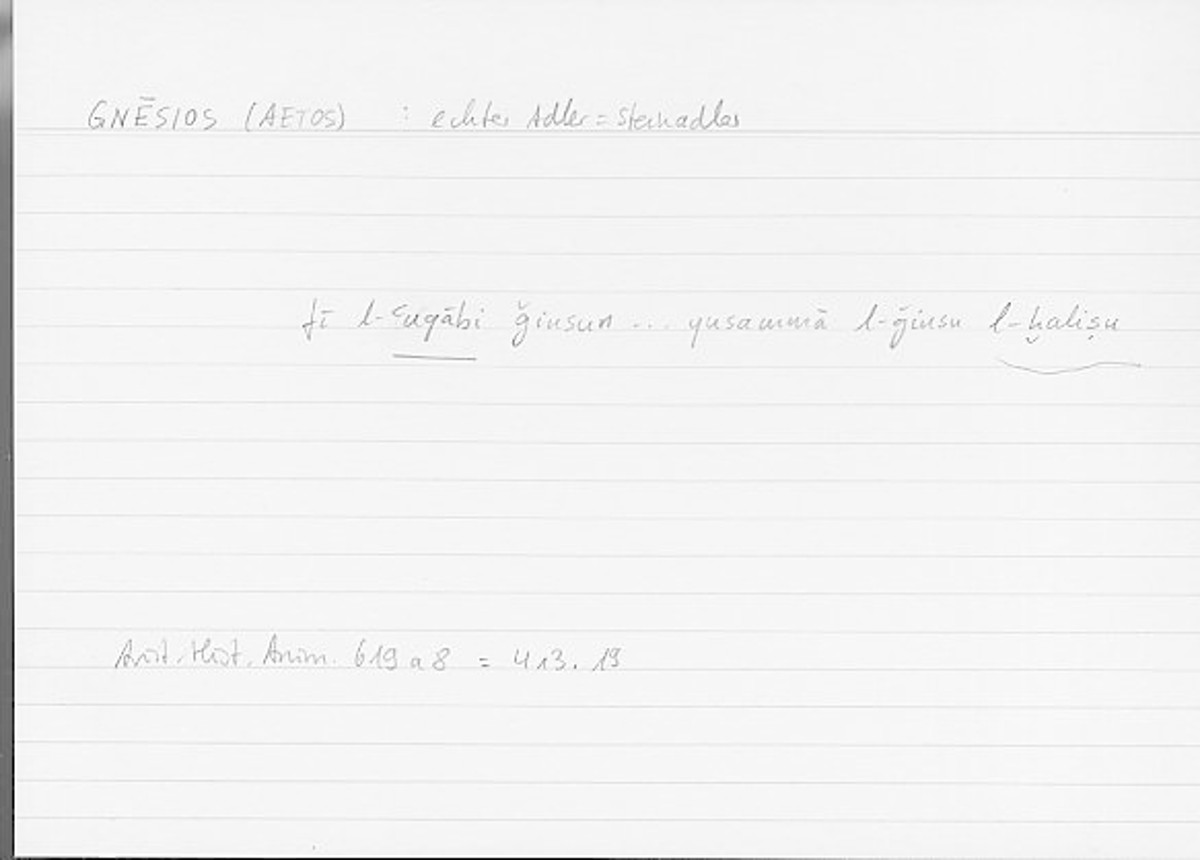 GNĒSIOS (AETOS) : echter Adler = Steinadler
fī l-ʿuqābi ǧinsun ... yusammā l-ǧinsu l-ḫaliṣu
Arist. Hist. Anim. 619 a 8 = 413.19